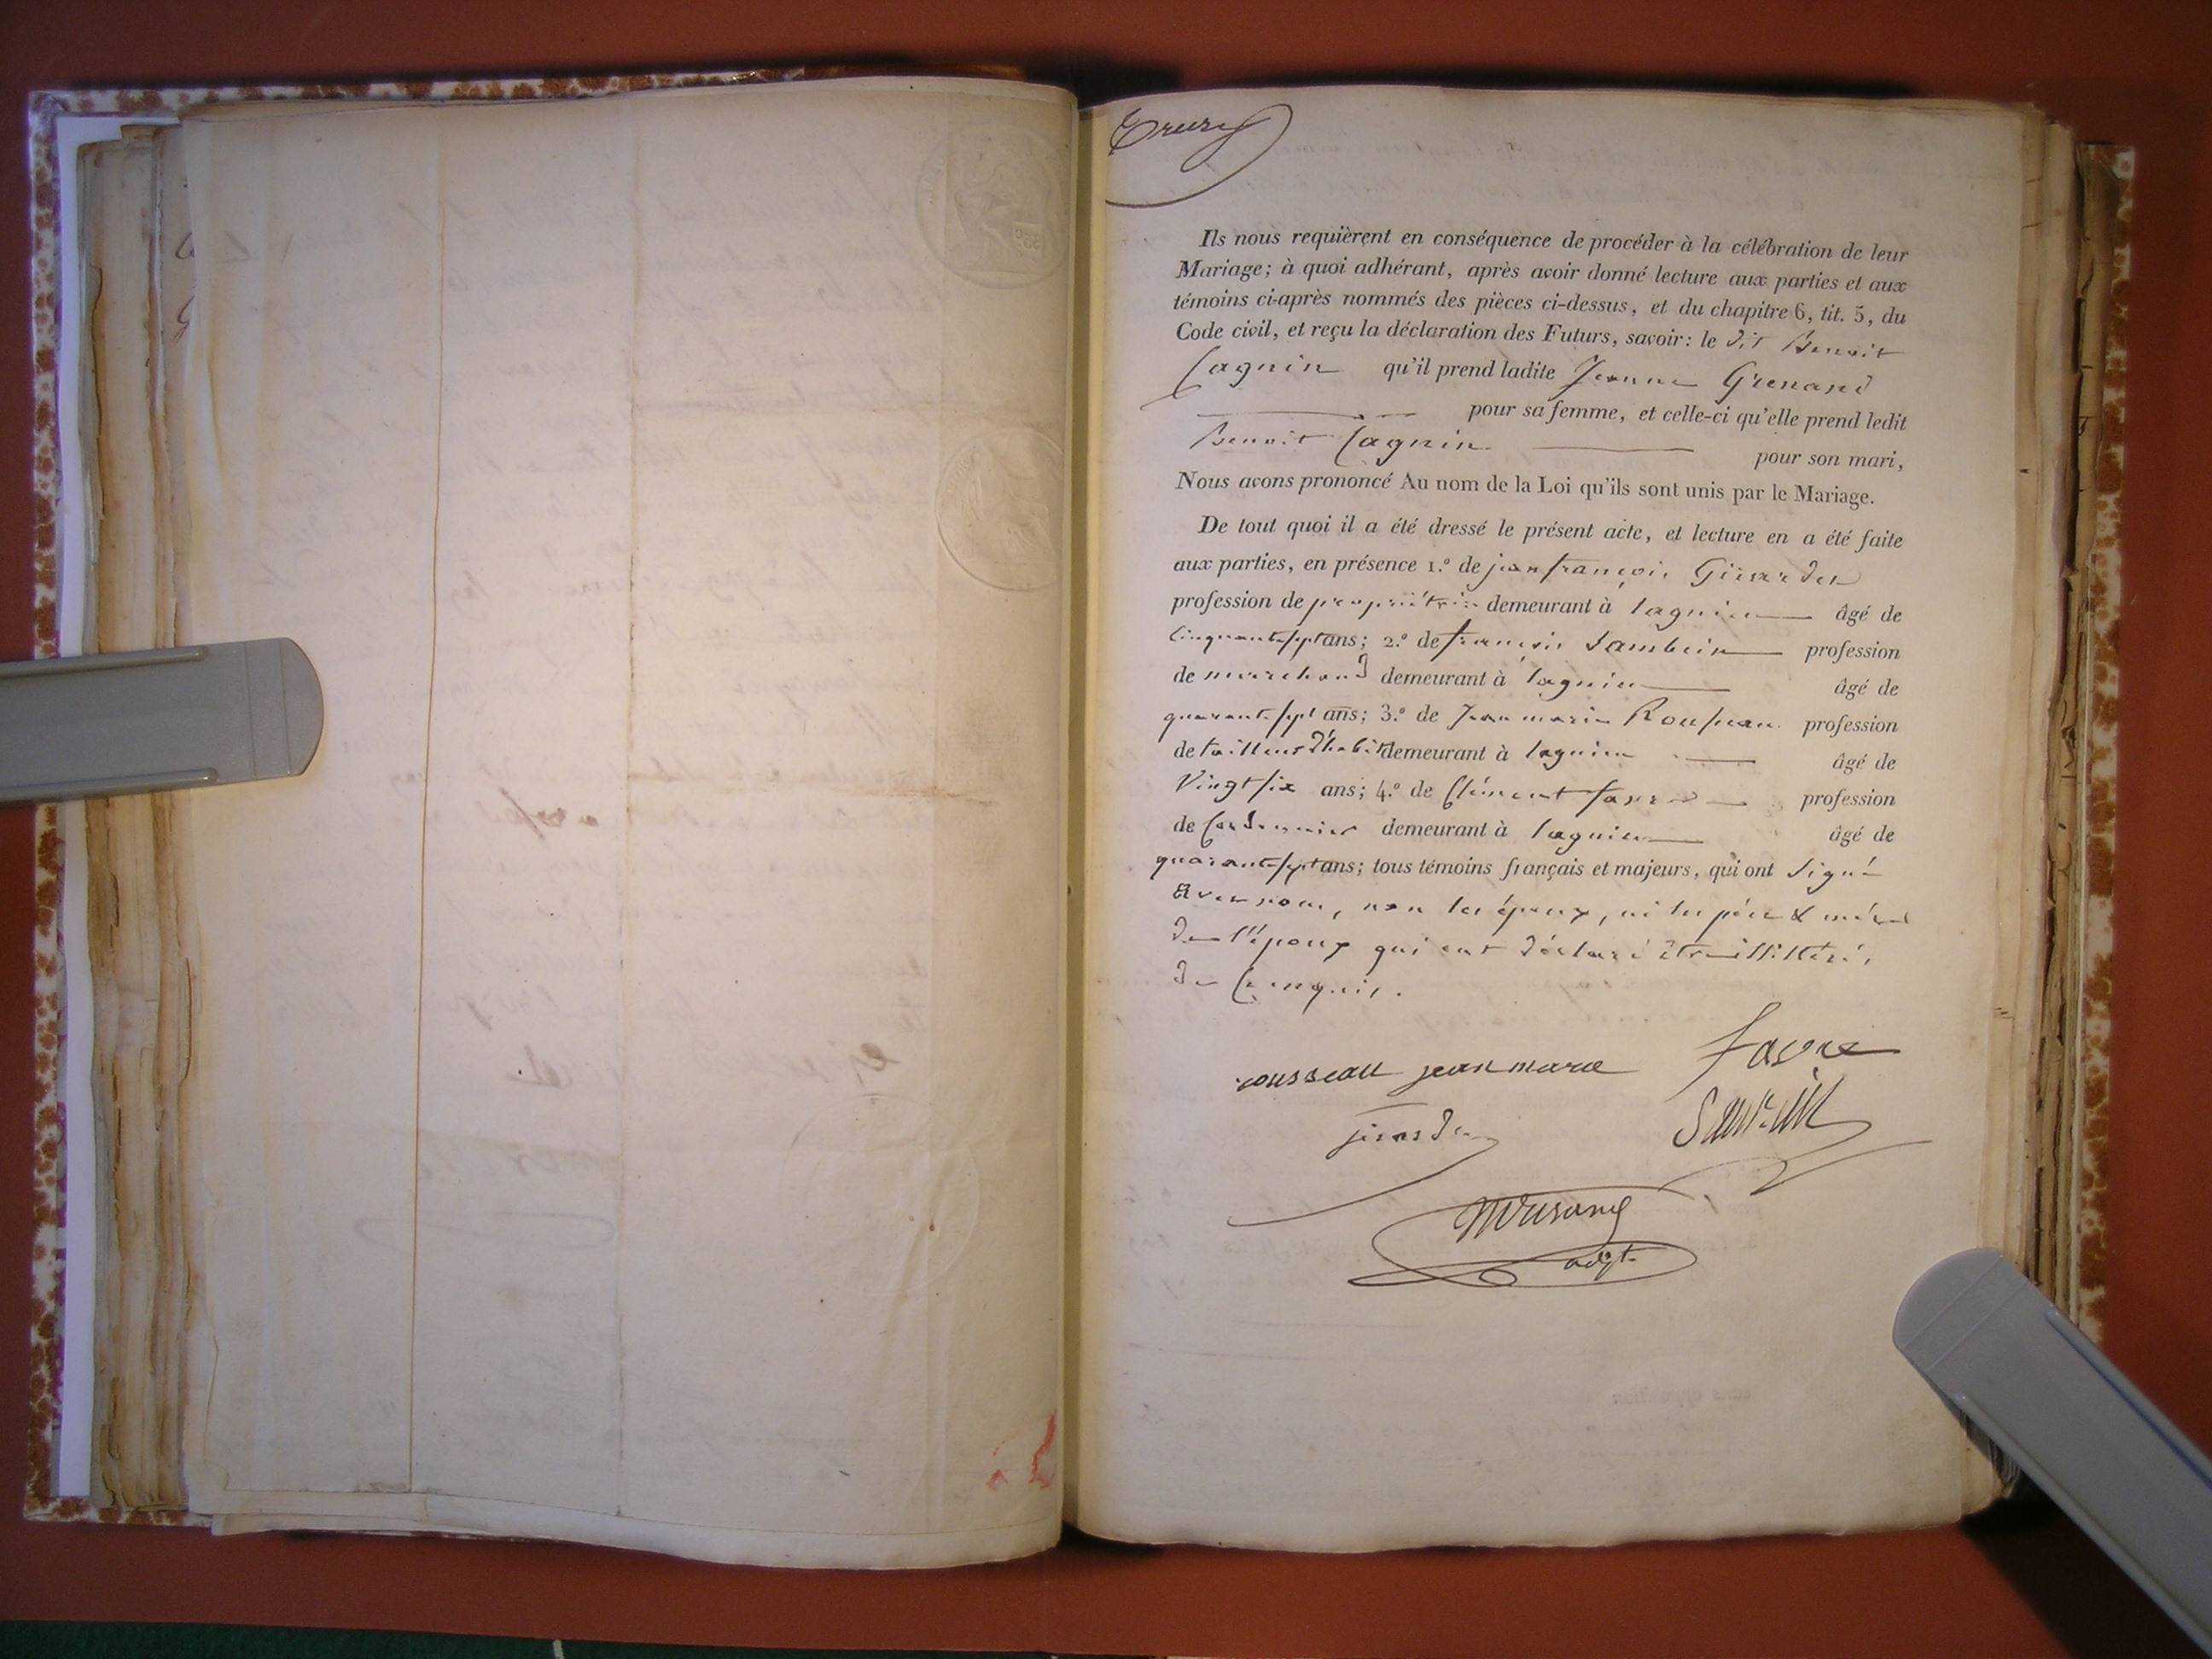 Ils nous requièrent en conséquence de procéder à la célébration de leur
Mariage; à quoi adhérant, après avoir donné lecture aux parties et aux
témoins ci-après nommés des pièces ci-dessus, et du chapitre 6, tit. 5, du
Code civil, et reçu la déclaration des Futurs, savoir: le dit Benoit
Cagnin qu'il prend ladite Jeanne Grenand
pour sa femme, et celle-ci qu'elle prend ledit
Benoit Cagnin pour son mari,
Nous avons prononcé Au nom de la Loi qu'ils sont unis par le Mariage.
De tout quoi il a été dressé le présent acte, et lecture en a été faite
aux parties, en présence 1.° de jean françois
profession de propriétaire demeurant à lagnieu âgé de
Cinquante sept ans; 2.° de françois Sambein profession
de marchand demeurant à lagnieu âgé de
quarante sept ans; 3.° de Jean marie Rousseau profession
de tailleur d'habit demeurant à lagnieu âgé de
Vingt six ans; 4.° de Clément favre profession
de Cordonnier demeurant à lagnieu âgé de
quarante sept ans; tous témoins français et majeurs, qui ont signé
avec nous, non les époux, ni les père & mère
de l'époux qui ont déclaré être illittéré,
de ce enquis.
rousseau jean marie favre
adjt.